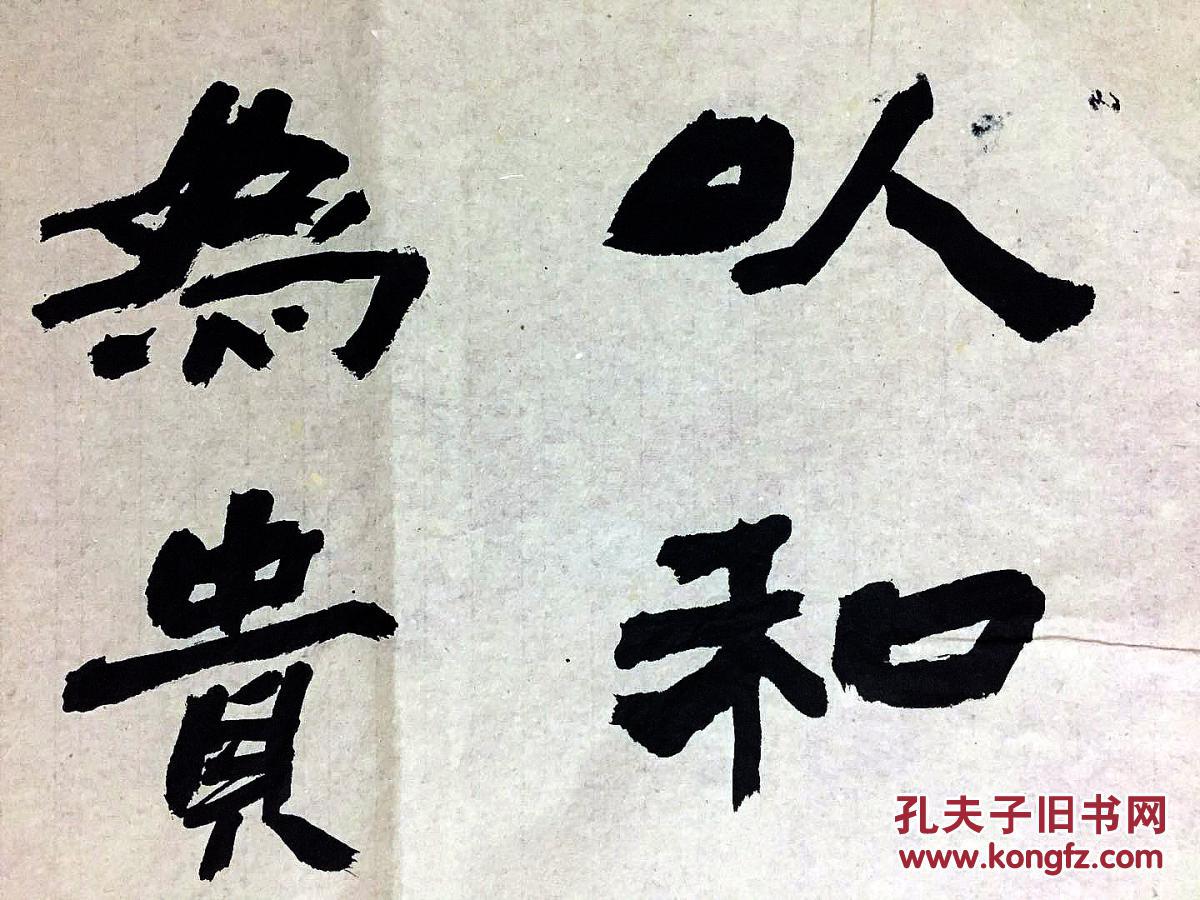 以和
為貴
孔夫子旧书网
www.kongfz.com